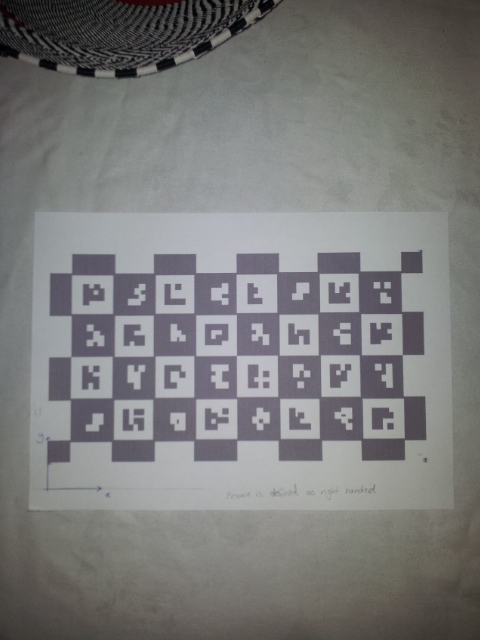 y
x
Frame is defined as right handed